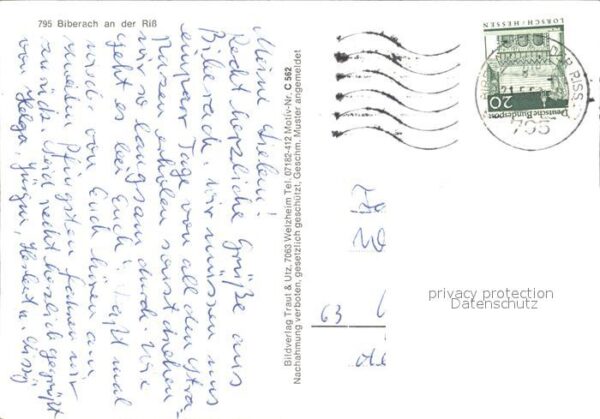 795 Biberach an der Riß
Meine Lieben!
Recht herzliche Grüße aus
Biberach. Wir müssen uns
ein paar Tage von all den Stra-
pazen erholen sonst drehen
wir so langsam durch. Wie
geht es bei Euch? Laßt mal
wieder von Euch hören am
zweiten Pfingsten fahren wir
zurück. Seid recht herzlich gegrüßt
von Helga, Jürgen, Herbert u.
Bildverlag Traut & Utz, 7063 Welzheim Tel. 07182-412 Motiv-Nr. C 562
Nachahmung verboten, gesetzlich geschützt, Geschm. Muster angemeldet
LORSCH/HESSEN
20
Deutsche Bundespost
DER RISS
795
63
privacy protection
Datenschutz